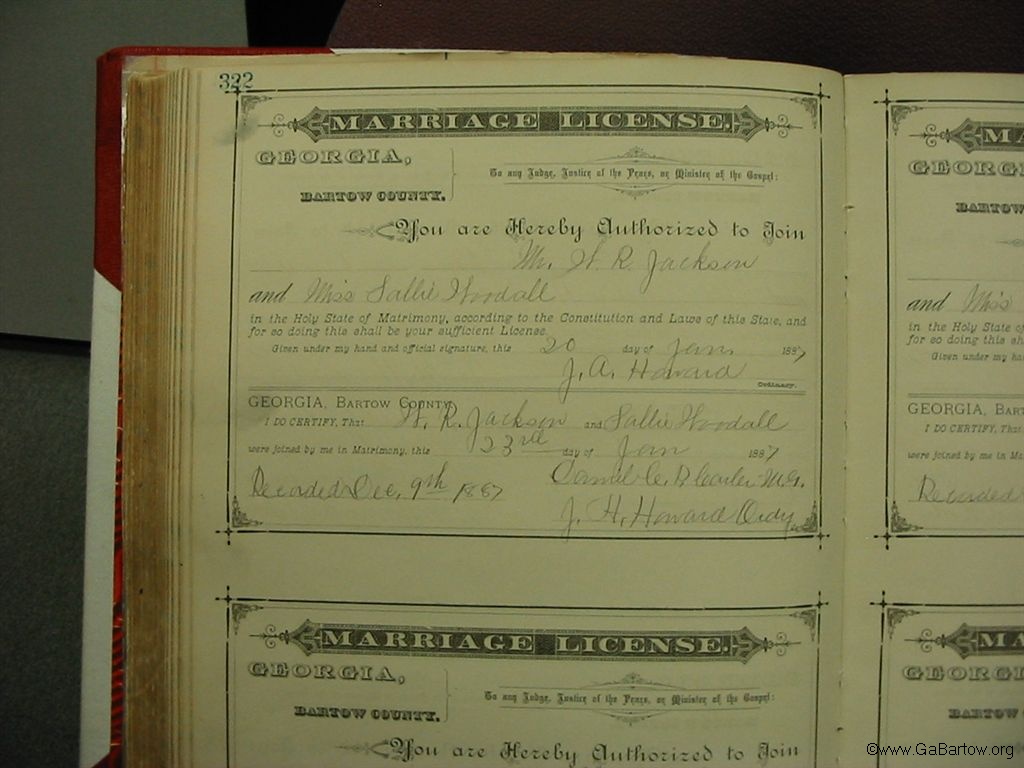 322
MARRIAGE LICENSE.
GEORGIA,
BARTOW COUNTY.
To any Judge, Justice of the Peace, or Minister of the Gospel:
You are Hereby Authorized to Join
Mr. W. R. Jackson
and Miss Sallie Woodall
in the Holy State of Matrimony, according to the Constitution and Laws of this State, and
for so doing this shall be your sufficient License.
Given under my hand and official signature, this 20 day of Jan. 1887
J. A. Howard
Ordinary.
GEORGIA, BARTOW COUNTY
I DO CERTIFY, That W. R. Jackson and Sallie Woodall
were joined by me in Matrimony, this 23rd day of Jan 1887
M.G.
Recorded Dec, 9th 1887
J. H. Howard Ordy
MARRIAGE LICENSE.
GEORGIA,
BARTOW COUNTY.
To any Judge, Justice of the Peace, or Minister of the Gospel:
You are Hereby Authorized to Join
MA
GEORGI
BARTOW
and Miss
in the Holy State o
for so doing this sh
Given under my ha
GEORGIA, BART
I DO CERTIFY, Tha
were joined by me in Ma
Recorded
MA
GEORGI
BARTOW
You are
©www.GaBartow.org